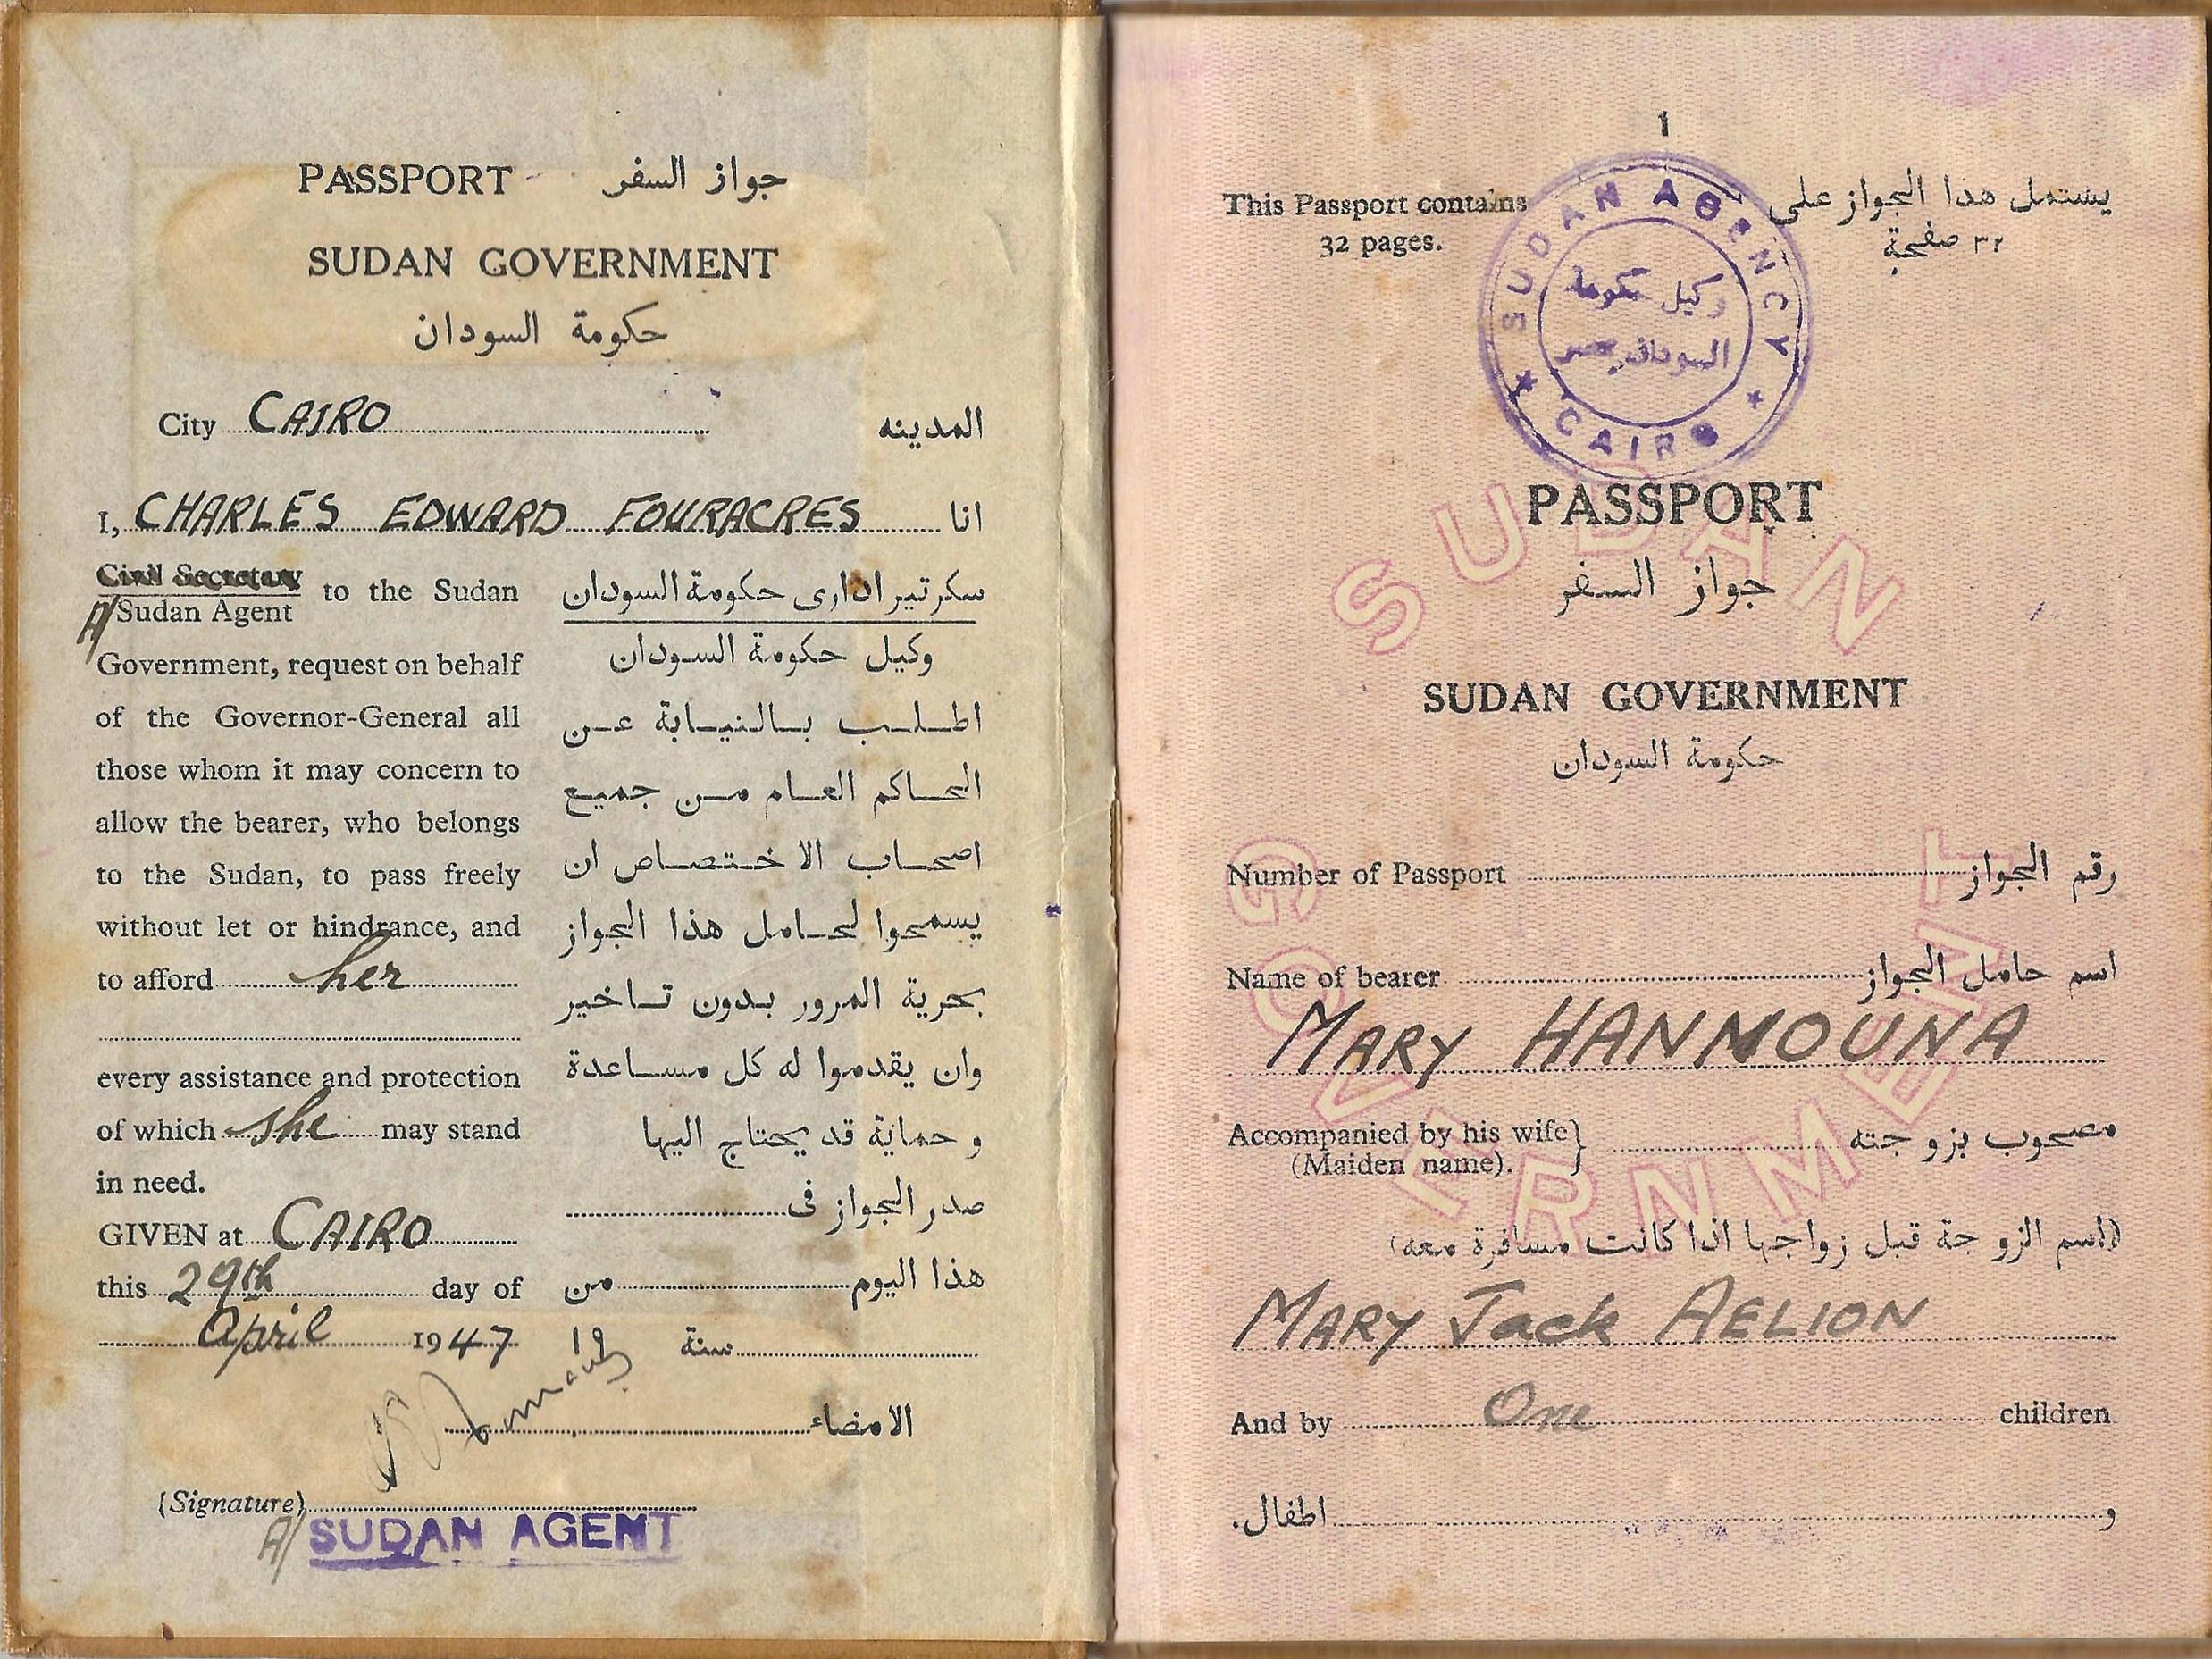 PASSPORT جواز السفر
SUDAN GOVERNMENT
حكومة السودان
City CAIRO المدينه
I, CHARLES EDWARD FOURACRES انا
Civil Secretary
A/ Sudan Agent
to the Sudan
Government, request on behalf
of the Governor-General all
those whom it may concern to
allow the bearer, who belongs
to the Sudan, to pass freely
without let or hindrance, and
to afford her
every assistance and protection
of which she may stand
in need.
GIVEN at CAIRO
this 29th day of
April 1947
سكرتير ادارى حكومة السودان
وكيل حكومة السودان
اطلب بالنيابة عن
الحاكم العام من جميع
اصحاب الاختصاص ان
يسمحوا لحامل هذا الجواز
بحرية المرور بدون تاخير
وان يقدموا له كل مساعدة
و حماية قد يحتاج اليها
صدر الجواز فى
هذا اليوم من
سنة ١٩
الامضاء
(Signature)
A/ SUDAN AGENT
1
This Passport contains
32 pages.
يستمل هذا الجواز على
٣٢ صفحة
SUDAN AGENCY
CAIRO
وكيل حكومة
السودان بمصر
PASSPORT
جواز السفر
SUDAN GOVERNMENT
حكومة السودان
SUDAN
GOVERNMENT
Number of Passport رقم الجواز
Name of bearer اسم حامل الجواز
MARY HANMOUNA
Accompanied by his wife مصحوب بزوجته
(Maiden name).
(اسم الزوجة قبل زواجها اذا كانت مسافرة معه)
MARY Jack AELION
And by One children
و اطفال.